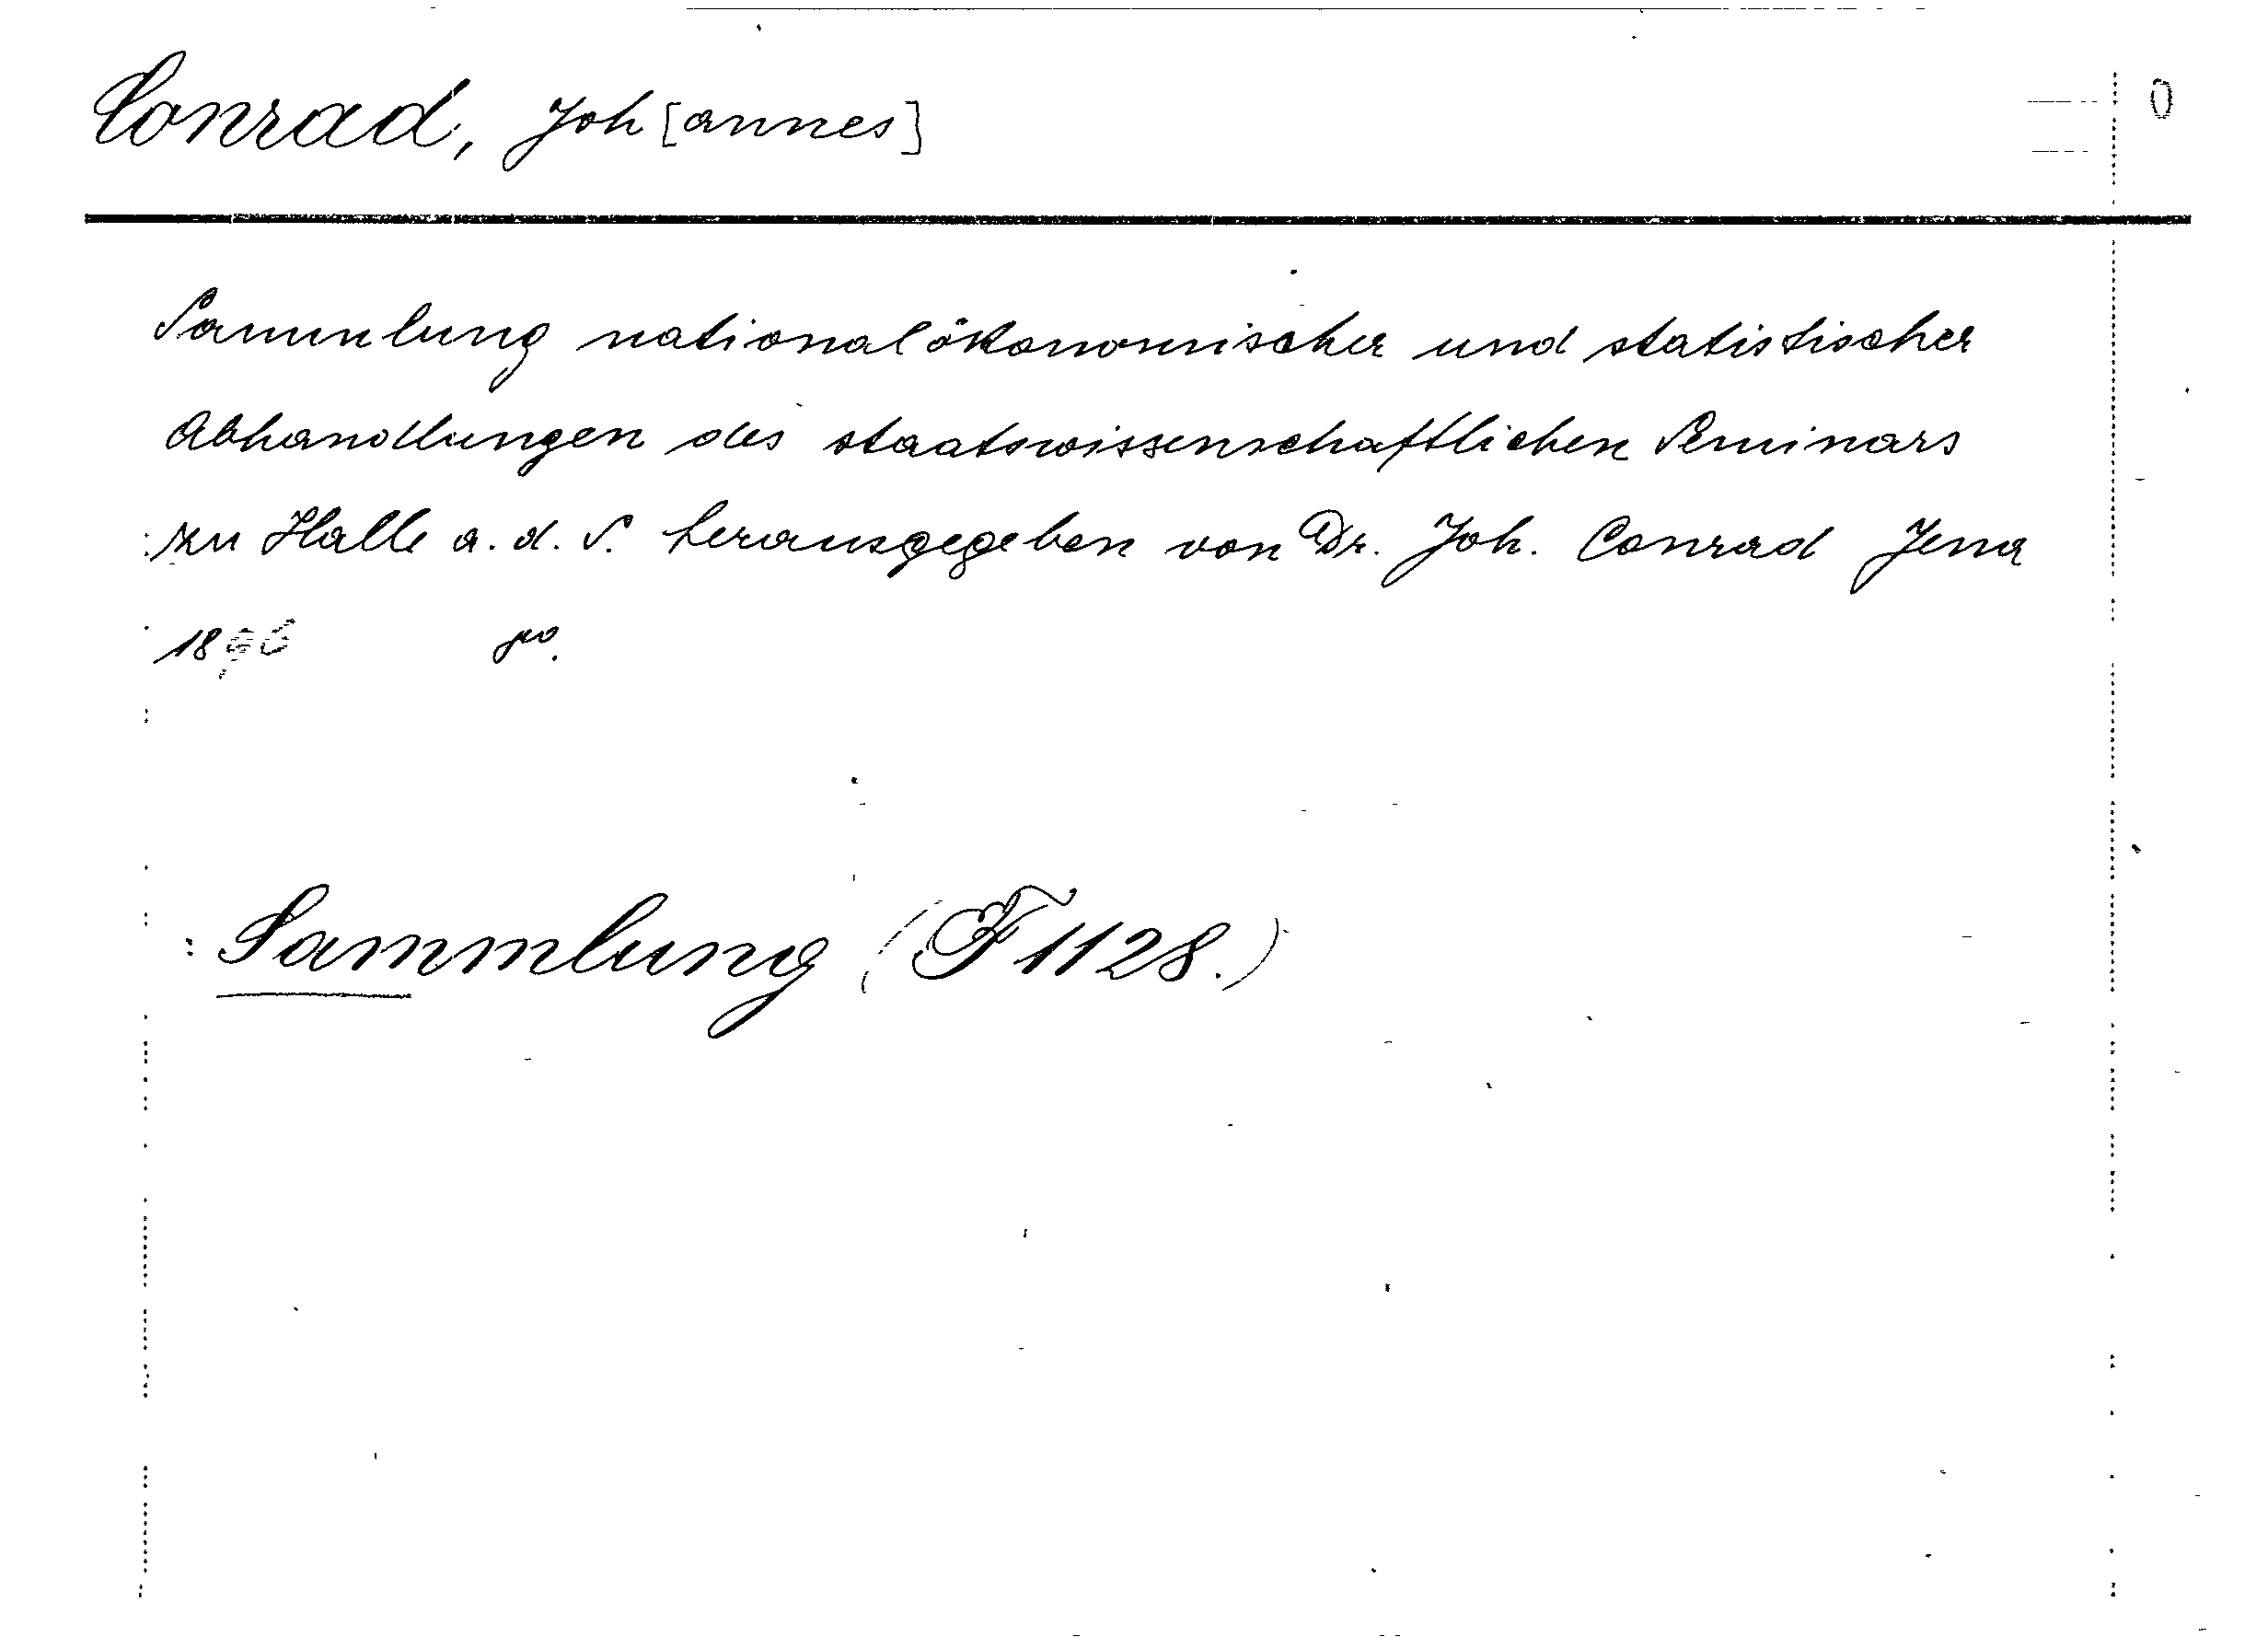 Conrad, Joh[annes]
0
Sammlung nationalökonomischer und statistischer
Abhandlungen des staatswissenschaftlichen Seminars
zu Halle a. d. S. herausgegeben von Dr. Joh. Conrad Jena
1896
: Sammlung (F 1128.)